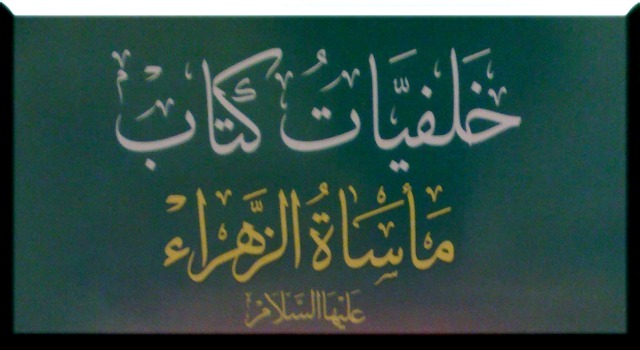 خَلفيَّاتُ كتاب
مَأسَاةُ الزَّهراء
عَليهَا السَّلَامْ